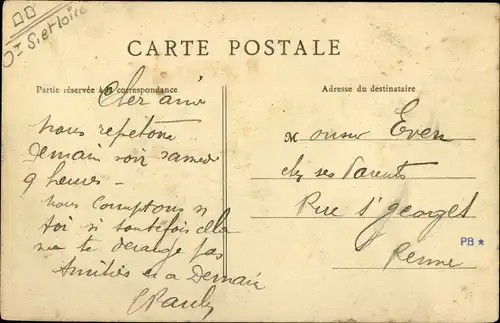 Dt S. et Loire
CARTE POSTALE
Partie réservée à la correspondance
Adresse du destinataire
Cher ami
nous repetons
Demain soir samedi
9 heures -
nous Comptons s
toi si toutefois cela
ne te derange pas
Amitiés et a Demain
Monsieur Even
chez ses Parents
Rue St georges
Renne
PB *